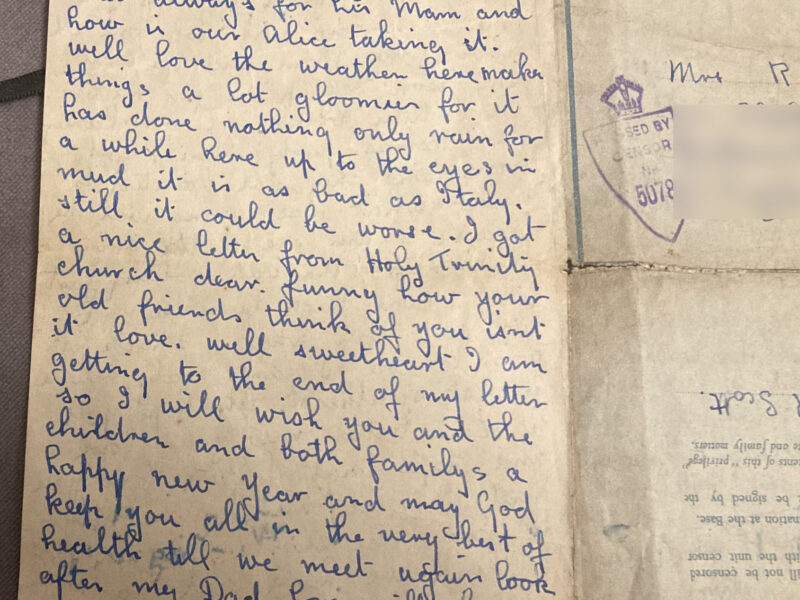 always for his Mam and
how is our Alice taking it.
well love the weather here makes
things a lot gloomier for it
has done nothing only rain for
a while here up to the eyes in
mud it is as bad as Italy.
still it could be worse. I got
a nice letter from Holy Trinity
church dear. funny how your
old friends think of you isnt
it love. well sweetheart I am
getting to the end of my letter
so I will wish you and the
children and both familys a
happy new year and may God
keep you all in the very best of
health till we meet again look
after my Dad
Mrs R
SED BY
CENSOR
No
5078
Scott.
e and family matters.
ents of this "privilege"
l be signed by the
nation at the Base.
ith the unit censor
ill not be censored